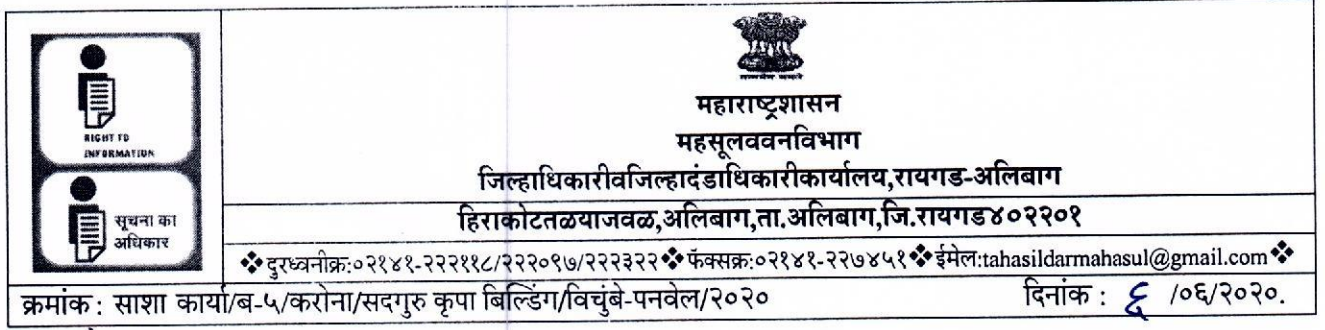 RIGHT TO
INFORMATION
सूचना का
अधिकार
महाराष्ट्रशासन
महसूलववनविभाग
जिल्हाधिकारीवजिल्हादंडाधिकारीकार्यालय,रायगड-अलिबाग
हिराकोटतळयाजवळ,अलिबाग,ता.अलिबाग,जि.रायगड४०२२०१
❖दुरध्वनीक्र:०२१४१-२२२११८/२२२०९७/२२२३२२❖फॅक्सक्र:०२१४१-२२७४५१❖ईमेल:tahasildarmahasul@gmail.com❖
क्रमांक : साशा कार्या/ब-५/करोना/सदगुरु कृपा बिल्डिंग/विचुंबे-पनवेल/२०२० दिनांक : ६ /०६/२०२०.